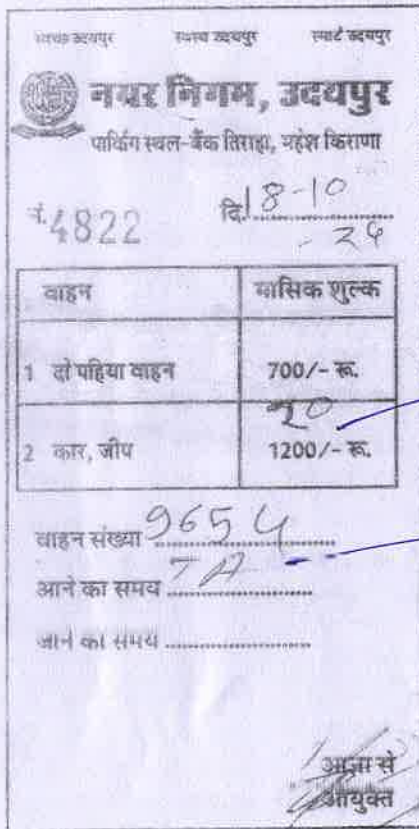 स्वच्छ उदयपुर स्वस्थ उदयपुर स्मार्ट उदयपुर
नगर निगम, उदयपुर
पार्किंग स्थल-बैंक तिराहा, महेश किराणा
नं. 4822 दि. 18-10
-24
वाहन मासिक शुल्क
1 दो पहिया वाहन 700/- रू.
20
2 कार, जीप 1200/- रू.
वाहन संख्या 9654
आने का समय 7 A
जाने का समय
आज्ञा से
आयुक्त